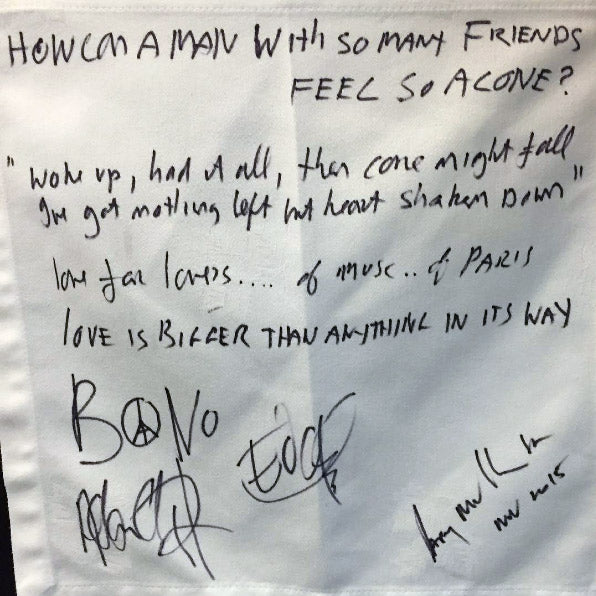 HOW CAN A MAN WITH SO MANY FRIENDS
FEEL SO ALONE?
"Woke up, had it all, then come night fall
I've got nothing left but heart shaken Down"
love for lovers.... of music.. of PARIS
LOVE IS BIGGER THAN ANYTHING IN ITS WAY
BONO
EDGE
Adam
Larry Mullen Jr
NOV 2015